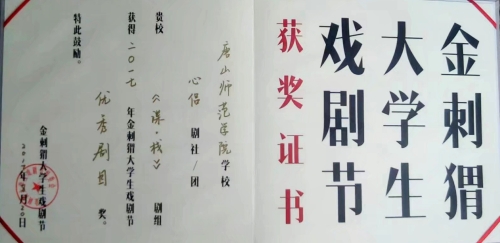 金刺猬
大学生
戏剧节
获奖证书
唐山师范学院 学校
心侣 剧社/团
贵校 《谋·杀》 剧组
获得二〇一七年金刺猬大学生戏剧节
优秀剧目 奖。
特此鼓励。
金刺猬大学生戏剧节